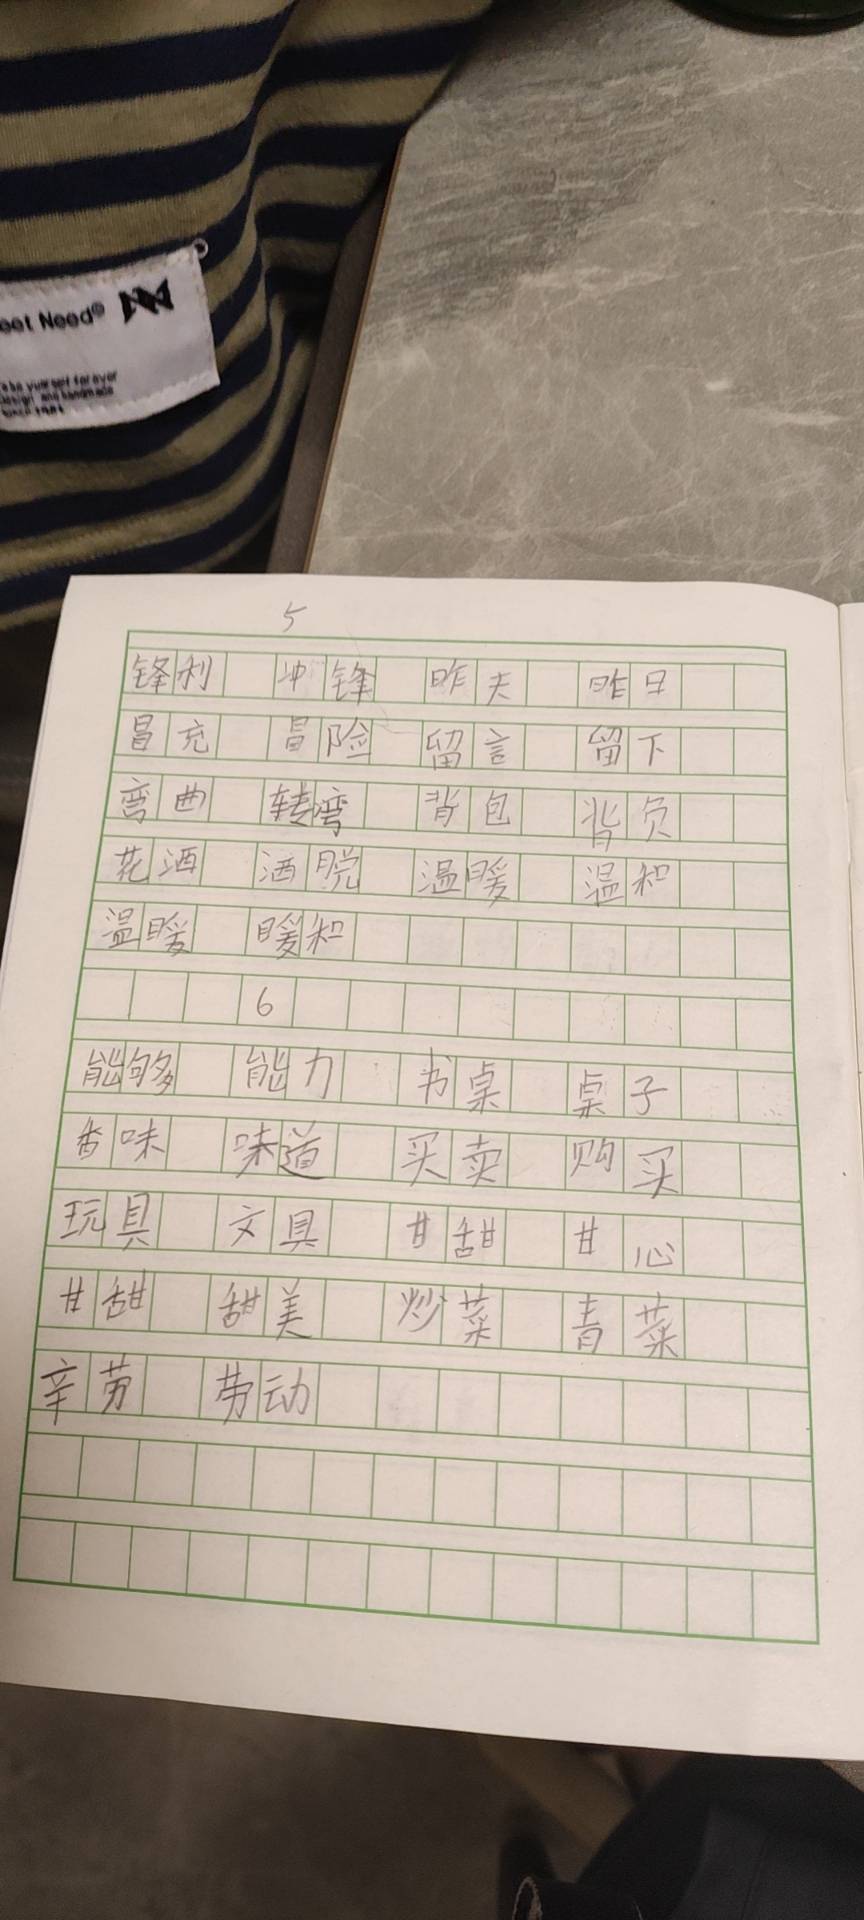 eet Need®
5
锋利 冲锋 昨天 昨日
冒充 冒险 留言 留下
弯曲 转弯 背包 背负
花洒 洒脱 温暖 温和
温暖 暖和
6
能够 能力 书桌 桌子
香味 味道 买卖 购买
玩具 文具 甘甜 甘心
甘甜 甜美 炒菜 青菜
辛劳 劳动